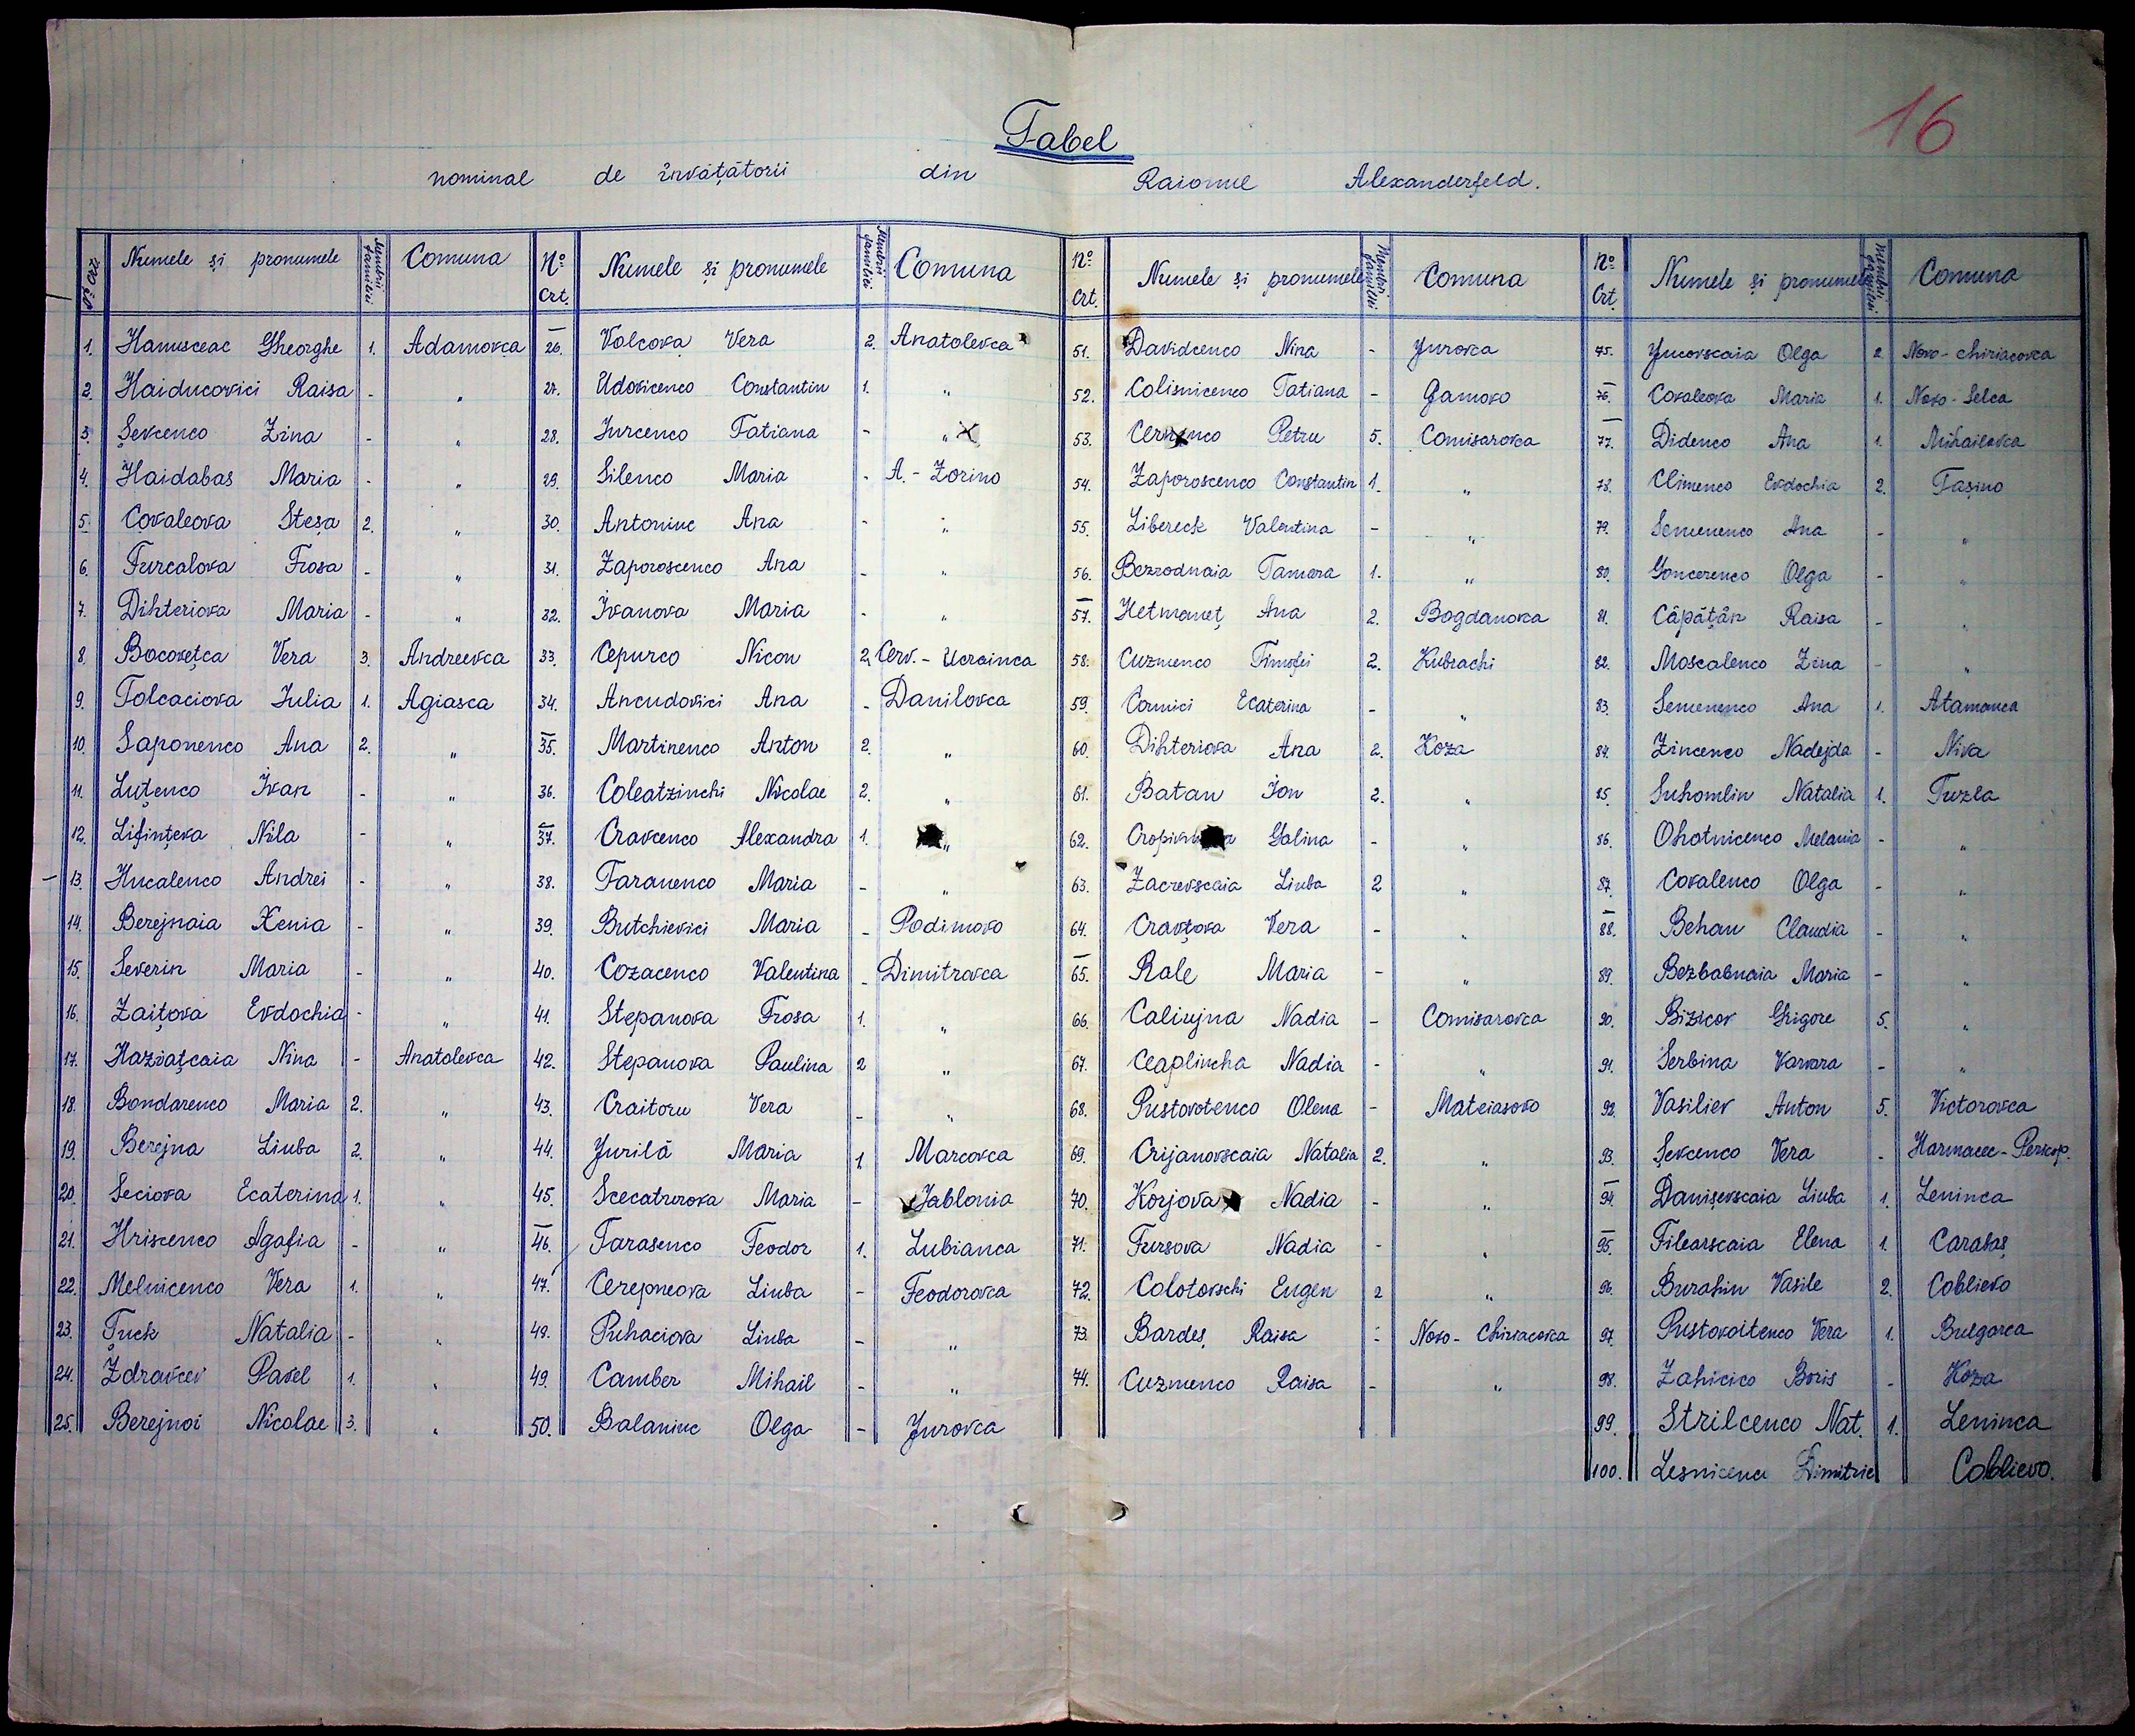 16
Tabel
nominal de învățătorii din Raionul Alexanderfeld.
No crt. Numele și pronumele Membrii familiei Comuna
1. Hanusceac Gheorghe 1. Adamovca
2. Haiducovici Raisa - „
3. Șevcenco Zina - „
4. Haidabas Maria - „
5. Covaleova Steșa 2. „
6. Furcalova Frosa - „
7. Dihteriova Maria - „
8. Bocovețca Vera 3. Andreevca
9. Tolcaciova Iulia 1. Agiasca
10. Saponenco Ana 2. „
11. Luțenco Ivan - „
12. Lifințeva Nila - „
13. Hucalenco Andrei - „
14. Berejnaia Xenia - „
15. Severin Maria - „
16. Zaițova Evdochia - „
17. Hazvațcaia Nina - Anatolevca
18. Bondarenco Maria 2. „
19. Berejna Liuba 2. „
20. Seciova Ecaterina 1. „
21. Hriscenco Agafia - „
22. Melnicenco Vera 1. „
23. Țuck Natalia - „
24. Zdravcev Pavel 1. „
25. Berejnoi Nicolae 3. „
No Crt. Numele și pronumele Membrii familiei Comuna
26. Volcova Vera 2. Anatolevca
27. Udovicenco Constantin 1. „
28. Iurcenco Tatiana - „
29. Silenco Maria - A.- Zorino
30. Antoniuc Ana - „
31. Zaporoscenco Ana - „
32. Ivanova Maria - „
33. Cepurco Nicon 2. Cerv.- Ucrainca
34. Ancudovici Ana - Danilovca
35. Martinenco Anton 2. „
36. Coleatzinchi Nicolae 2. „
37. Cravcenco Alexandra 1. „
38. Taranenco Maria - „
39. Butchievici Maria - Podimovo
40. Cozacenco Valentina - Dimitrovca
41. Stepanova Frosa 1. „
42. Stepanova Paulina 2 „
43. Craitoru Vera - „
44. Jurilă Maria 1. Marcovca
45. Scecaturova Maria - Jablonia
46. Tarasenco Feodor 1. Lubianca
47. Cerepneova Liuba - Feodorovca
49. Puhaciova Liuba - „
49. Camber Mihail - „
50. Balaniuc Olga - Jurovca
No Crt. Numele și pronumele Membrii familiei Comuna
51. Davidcenco Nina - Jurovca
52. Colisnicenco Tatiana - Gamovo
53. Petru 5. Comisarovca
54. Zaporoscenco Constantin 1. „
55. Libereck Valentina - „
56. Bezrodnaia Tamara 1. „
57. Hetmaneț Ana 2. Bogdanovca
58. Cuzmenco Timofei 2. Kubrachi
59. Cornici Ecaterina - „
60. Dihteriova Ana 2. Koza
61. Batan Ion 2. „
62. Galina - „
63. Zacrevscaia Liuba 2 „
64. Cravțova Vera - „
65. Rale Maria - „
66. Caliujna Nadia - Comisarovca
67. Ceaplincha Nadia - „
68. Pustovotenco Olena - Mateiasovo
69. Crijanovscaia Natalia 2. „
70. Korjova Nadia - „
71. Fursova Nadia - „
72. Colotovschi Eugen 2 „
73. Bardeș Raisa - Novo- Chiriacovca
74. Cuzmenco Raisa - „
No Crt. Numele și pronumele Membrii familiei Comuna
75. Jucovscaia Olga 2. Novo- chiriacovca
76. Covaleova Maria 1. Novo- Selca
77. Didenco Ana 1. Mihailovca
78. Climenco Evdochia 2. Tașino
79. Semenenco Ana - „
80. Goncerenco Olga - „
81. Căpățân Raisa - „
82. Moscalenco Zina - „
83. Semenenco Ana 1. Atamanca
84. Zincenco Nadejda - Niva
85. Suhomlin Natalia 1. Tuzla
86. Ohotnicenco Melania - „
87. Covalenco Olga - „
88. Behan Claudia - „
89. Bezbabnaia Maria - „
90. Bizicov Grigore 5. „
91. Serbina Varvara - „
92. Vasiliev Anton 5. Victorovca
93. Șevcenco Vera -
94. Danișevscaia Liuba 1. Leninca
95. Filearscaia Elena 1. Carabaș
96. Burahin Vasile 2. Coblievo
97. Pustovoitenco Vera 1. Bulgarca
98. Zahicico Boris - Koza
99. Strilcenco Nat. 1. Leninca
100. Lesnicenc Dimitrie Coblievo.